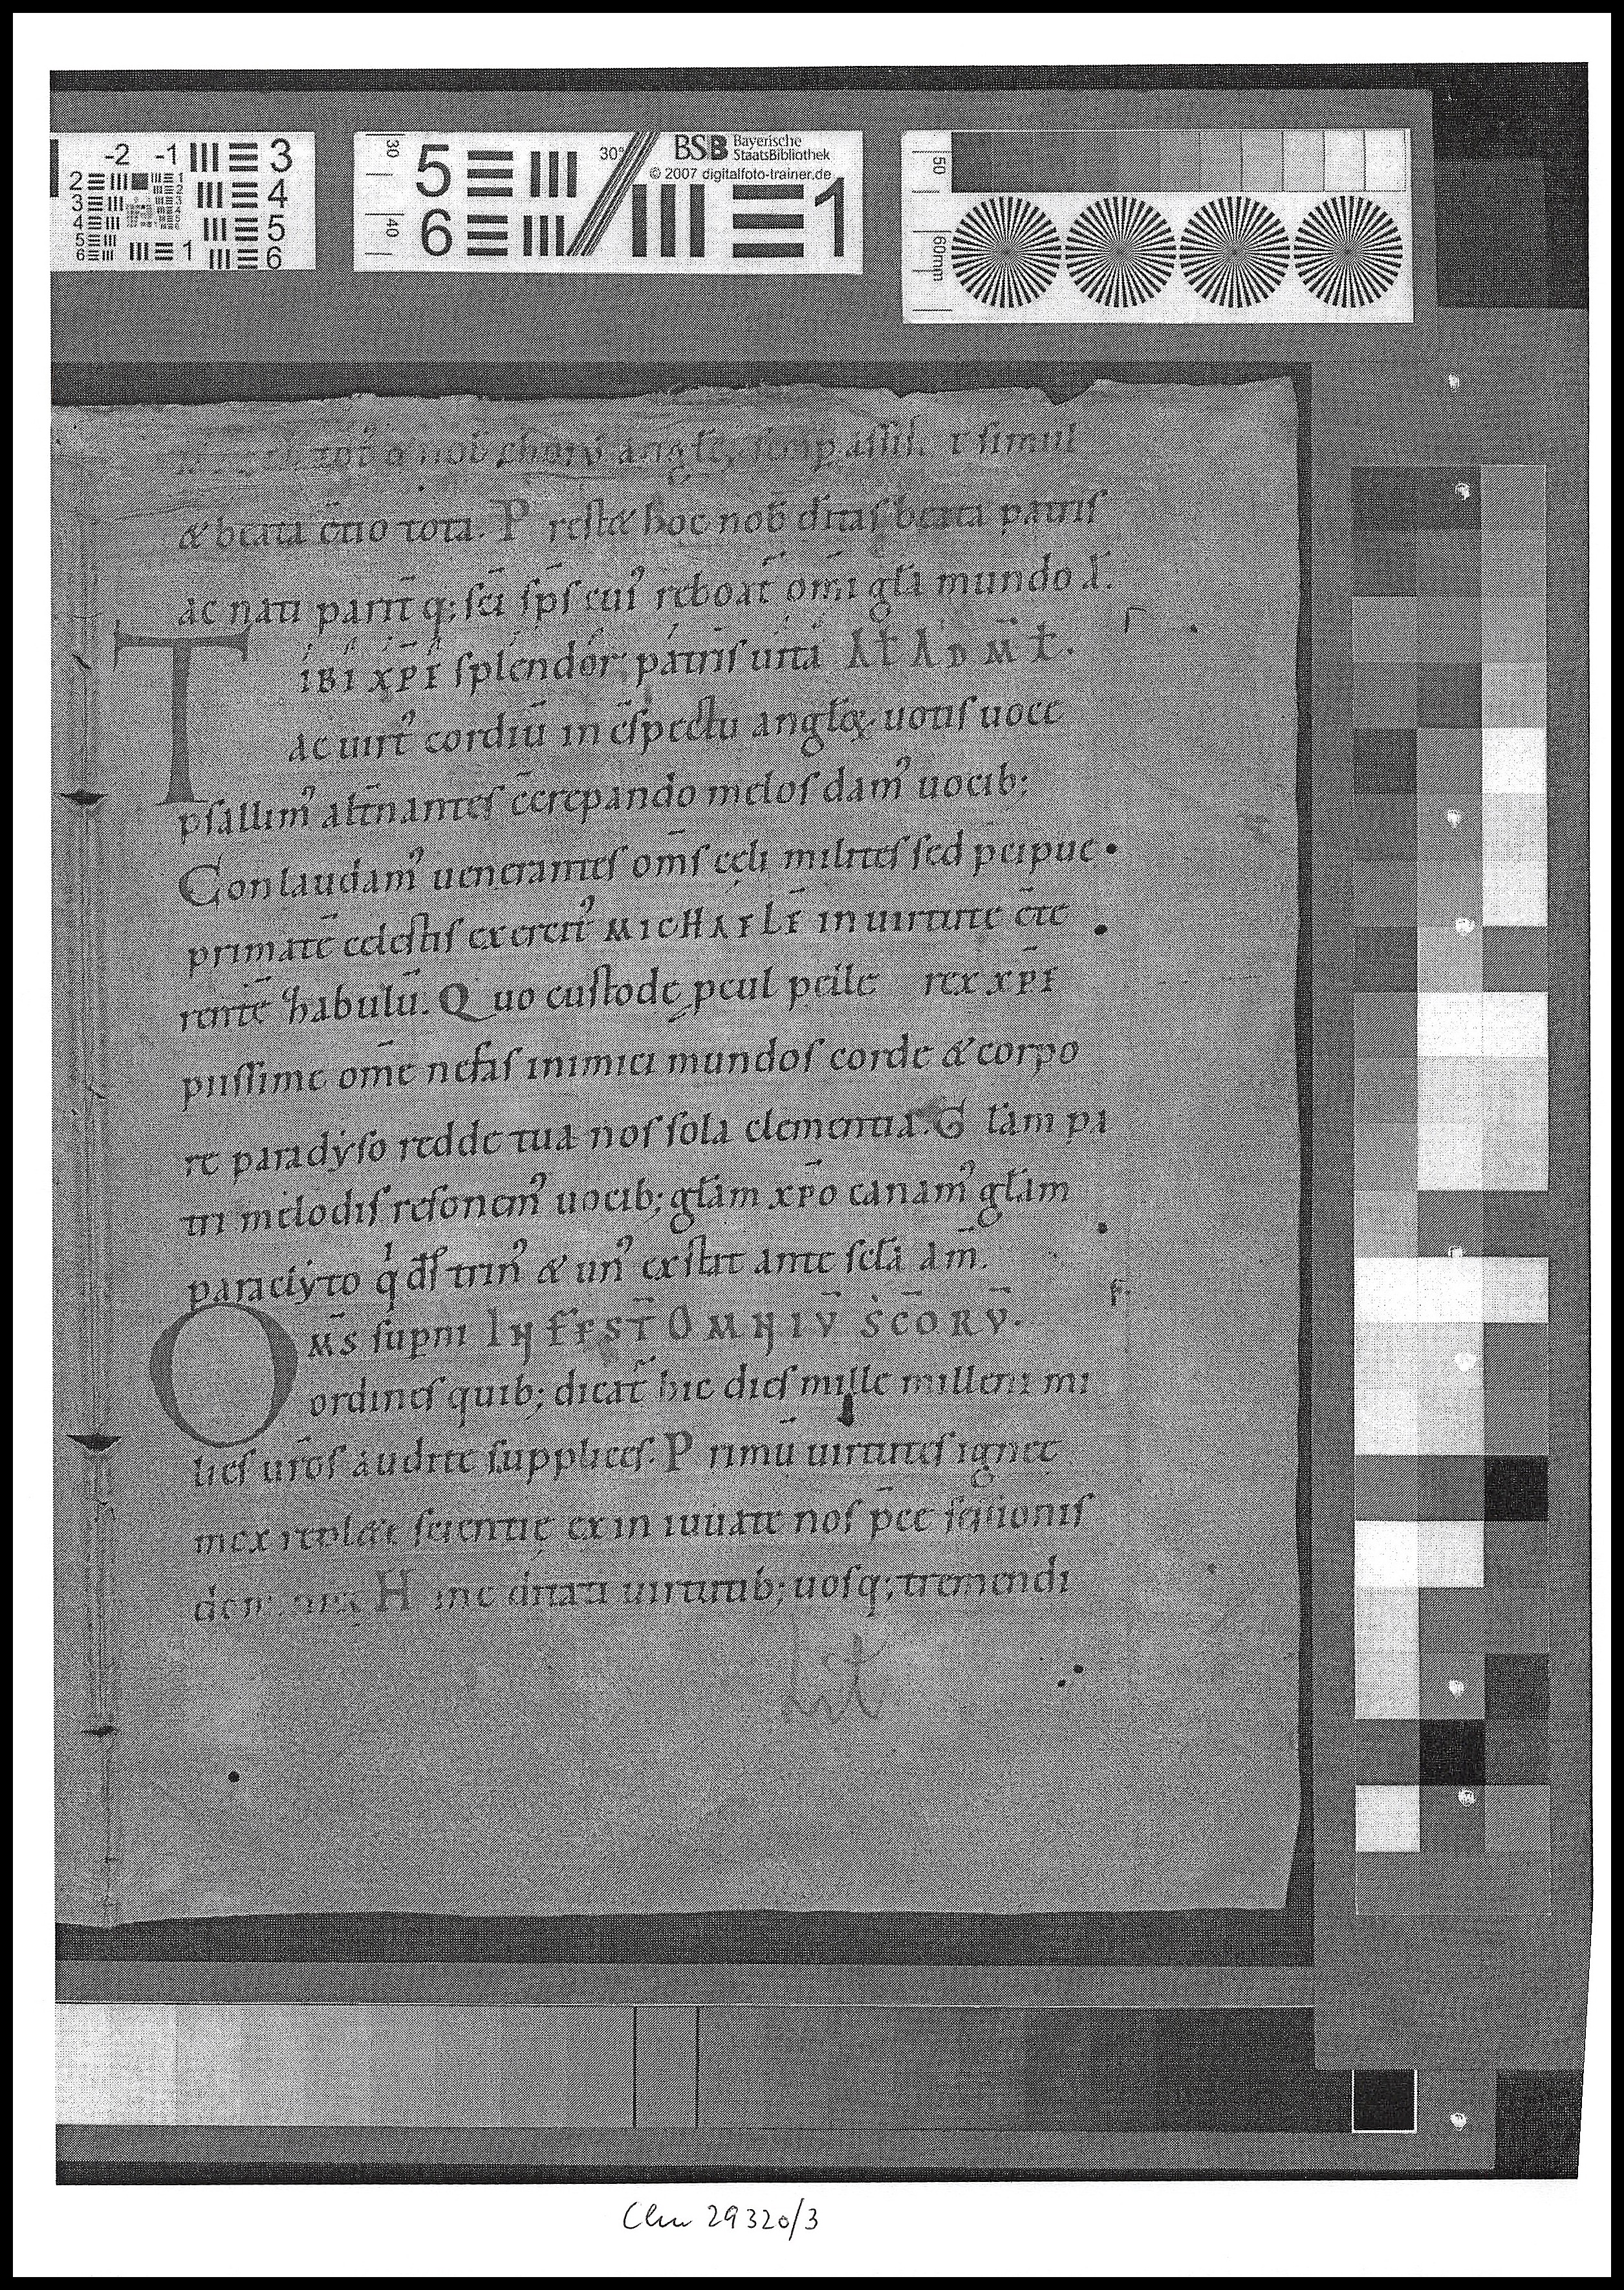 -2 -1 3
2 1
3 4
4 5
5
6 1 6
30 5 30° BSB Bayerische StaatsBibliothek
© 2007 digitalfoto-trainer.de
40 6 1
50
60mm
nob choru angł simp assist & simul
& beata c̄tio tota. P rest& hoc nob̄ d̄itas beata patris
ac nati parit̄ q; sc̄i sp̄s cui᾿ reboat̄ om̄i gl̄a mundo A.
IBI XP̄E splendor patris uirtꝰ AT AD MT.
T ac uirt᾿ cordiū in c̄spectu angł'oꝝ uotis uoce
psallim᾿ alt̄nantes c̄crepando melos dam᾿ uocib;
Conlaudam᾿ uenerantes om̄s cęli milites sed p̄cipue
primatē celestis exercit᾿ MICHAELĒ in uirtute c̄te
rentē zhabulū. Quo custode pcul pelle rex xp̄e
piissime om̄e nefas inimici mundos corde & corpo
re paradyso redde tua nos sola clementia. G łam pa
tri melodis resonem᾿ uocib; głam xp̄o canam᾿ głam
paraclyto q d̄s trin᾿ & un᾿ exstat ante sc̄la am̄.
O M̄S sup̄ni IN FEST̄ OMNIV̄ SC̄ORV̄.
ordines quib; dicat̄ hic dies mille milleni mi
lies ur̄os audite supplices. P rimū uirtutes ignee
mex replete scientię exin iuuate nos p̄ce
H inc ditati uirtutib; uosq; tremendi
Clm 29320/3